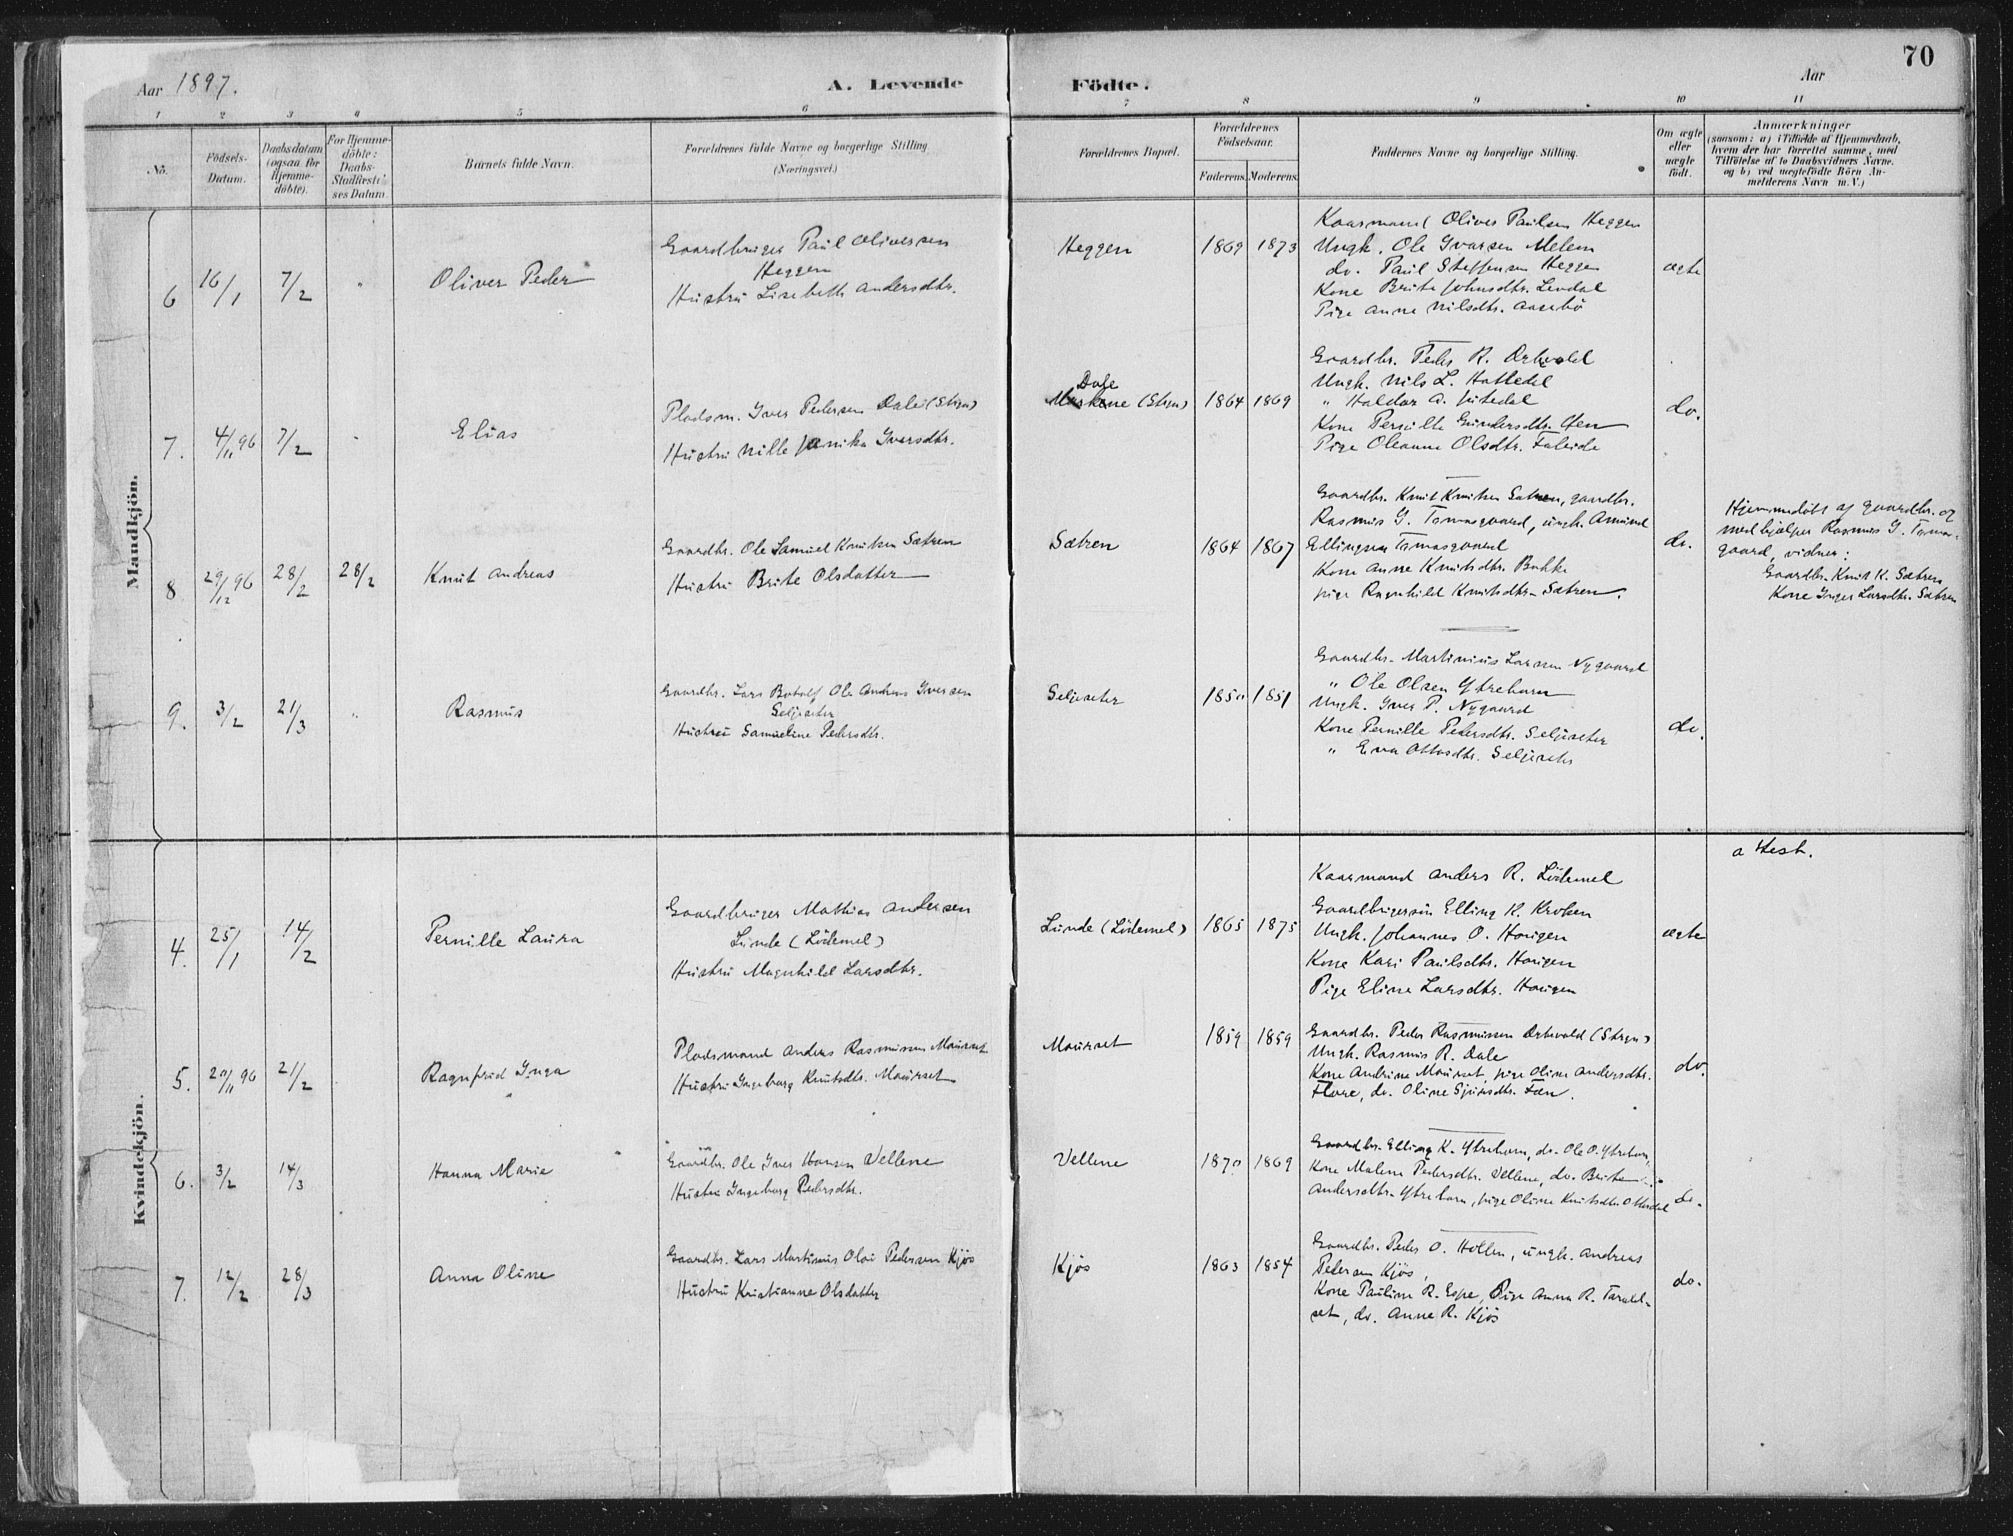 70
Aar 1897.
A. Levende Födte.
Aar
1 2 3 4 5 6 7 8 9 10 11
No.
Födsels-Datum.
Daabsdatum (ogsaa for Hjemme-döbte).
For Hjemme-döbte: Daabs-Stadfæstelses Datum.
Barnets fulde Navn.
Forældrenes fulde Navne og borgerlige Stilling.
(Næringsvei.)
Forældrenes Bopæl.
Forældrenes Födselsaar.
Faderens. Moderens.
Faddernes Navne og borgerlige Stilling.
Om ægte eller uægte födt.
Anmærkninger
(saasom: a) i Tilfælde af Hjemmedaab, hvem der har forrettet samme, med Tilföielse af to Daabsvidners Navne. og b) ved uægtefödte Börn Anmelderens Navn m. V.)
Mandkjön.
6 16/1 7/2 " Oliver Peder
Gaardbruger Paul Oliversen
Heggen
Hustru Lisebeth Andersdtr.
Heggen 1869 1873
Kaarmand Oliver Paulsen Heggen
Ungk. Ole Ivarsen Melem
do. Paul Steffensen Heggen
Kone Brite Johnsdtr. Levdal
Pige Anne Nilsdtr. Aasebö
ægte
7. 4/11 96 7/2 " Elias
Pladsm. Iver Pedersen Dale (Stryn)
Hustru Nille Janika Iversdtr.
Dale
(Stryn) 1864 1869
Gaardbr. Peder R. Århvold
Ungk. Nils L. Hattedal
" Haldor A. Jutedal
Kone Pernille Gundersdtr.
Pige Oleanna Olsdtr. Faleide
do.
8 29/12 96 28/2 28/2 Knut Andreas
Gaardbr. Ole Samuel Knutsen Sætren
Hustru Brite Olsdatter
Sætren 1864 1867
Gaardbr. Knut Knutsen Sætren, gaardbr.
Rasmus G. Tomasgaard, ungk. Amund
Ellingsen Tomasgaard
Kone Anne Knutsdtr. Bakke
pige Ragnhild Knutsdtr. Sætren.
do.
Hjemmedöbt af gaardbr. og
medhjælper Rasmus G. Tomas-
gaard, vidner:
Gaardbr. Knut K. Sætren
Kone Inger Larsdtr. Sætren
9. 3/2 21/3 " Rasmus
Gaardbr. Lars Botolf Ole Andreas Iversen
Seljeseter
Hustru Samueline Pedersdtr.
Seljeseter 1850 1851
Gaardbr. Martinius Larsen Nygaard
" Ole Olsen Ytrehorn
Ungk. Iver P. Nygaard
Kone Pernille Pedersdtr. Seljeseter
" Eva Ottosdtr. Seljeseter
do.
Kvindekjön.
4. 25/1 14/2 Pernille Laura
Gaardbruger Mathias Andersen
Lunde (Lödemel)
Hustru Magnhild Larsdtr.
Lunde (Lödemel) 1865 1875
Kaarmand Anders R. Lödemel
Gaardbrugersön Elling K. Kroken
Ungk. Johannes O. Haugen
Kone Kari Paulsdtr. Haugen
Pige Eline Larsdtr. Haugen
ægte
attest.
5. 20/11 96 21/2 Ragnfrid Inga
Pladsmand Anders Rasmussen Maurset
Hustru Ingeborg Knutsdtr. Maurset
Maurset 1859 1859
Gaardbr. Peder Rasmussen Århvold (Stryn)
Ungk. Rasmus R. Dale
Kone Andrine Maurset, pige Oline Andersdtr.
Flore, do. Oline Sjursdtr. Fæn.
do.
6. 3/2 14/3 Hanna Marie
Gaardbr. Ole Iver Hansen Vellene
Hustru Ingeborg Pedersdtr.
Vellene 1870 1869
Gaardbr. Elling K. Ytrehorn, do. Ole O. Ytrehorn,
Kone Malene Pedersdtr. Vellene, do. Brite
Andersdtr. Ytrehorn, pige Oline Knutsdtr. Otterdal
do.
7. 12/2 28/3 Anna Oline
Gaardbr. Lars Martinus Olai Pedersen Kjös
Hustru Kristianne Olsdatter
Kjös 1863 1854
Gaardbr. Peder O. Hollen, ungk. Andreas
Pedersen Kjös,
Kone Pauline R. Espe, Pige Anna R. Tarald-
set, do. Anne R. Kjös
do.